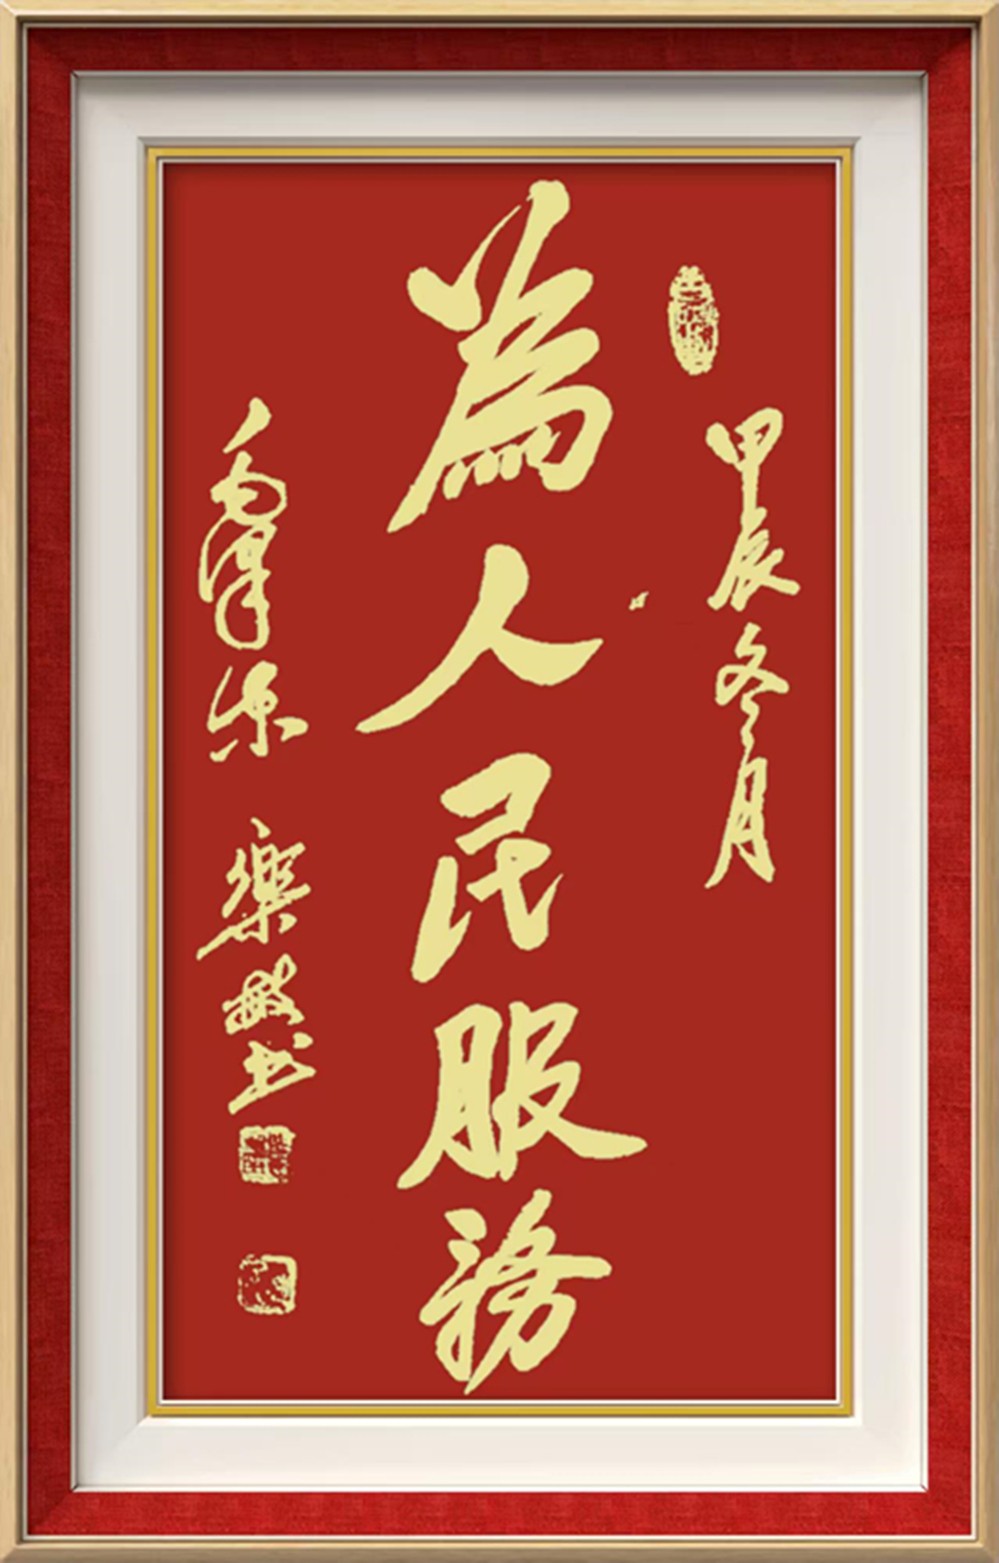 甲辰冬月
為人民服務
毛澤东
樂敏书